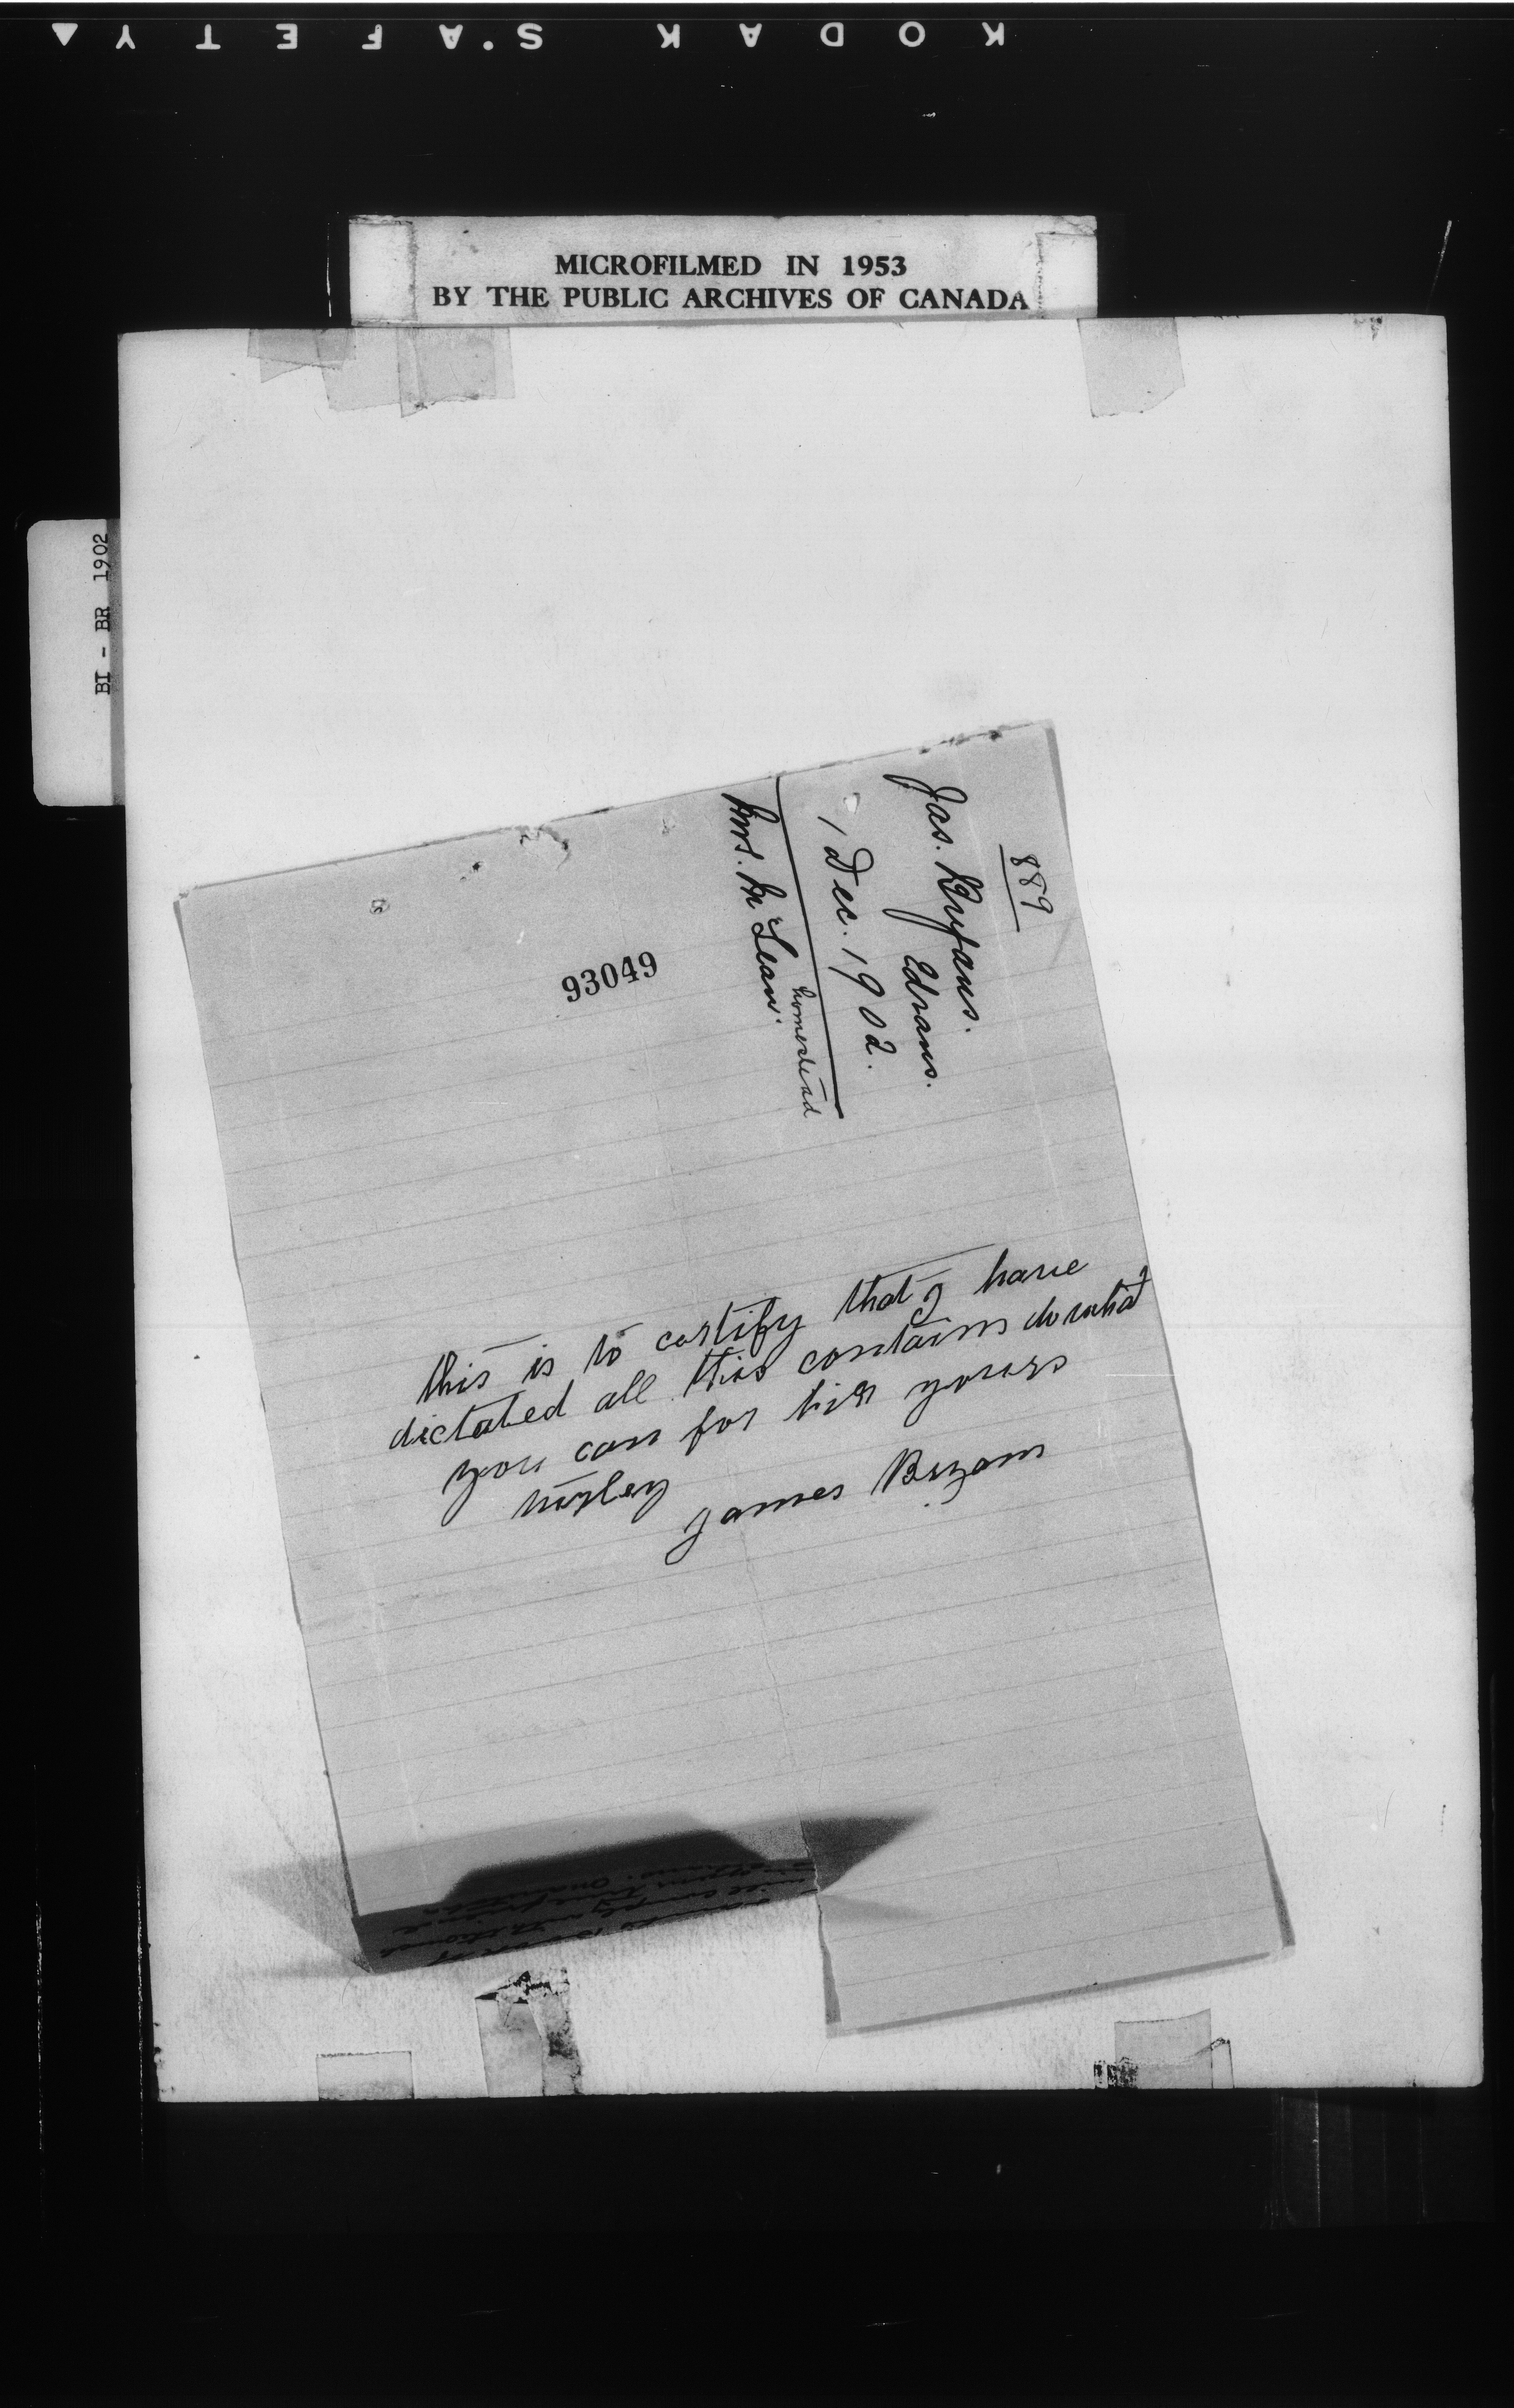 KODAK S'AFETY
MICROFILMED IN 1953
BY THE PUBLIC ARCHIVES OF CANADA
BI - BR 1902
889
Jas. Bryans.
Edrans.
1 Dec. 1902.
Mrs. McLean.
homestead
93049
this is to certify that I have
dictated all this contains do what
you can for her yours
truley
James Bryans